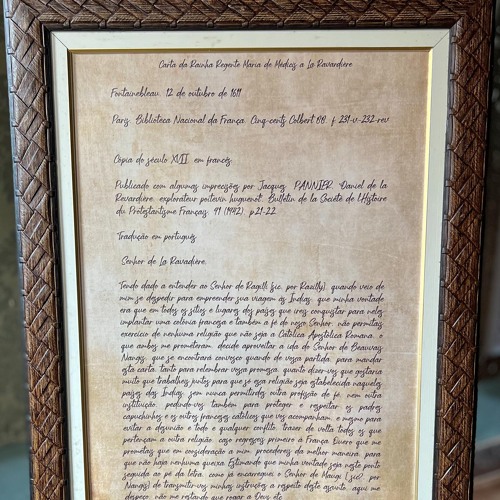 Carta da Rainha Regente Maria de Medicis a La Ravardiere
Fontainebleau, 12 de outubro de 1611
Paris, Biblioteca Nacional da França, Cinq-cents Colbert 88, f 231-v-232-rev
Copia do século XVII, em francês.
Publicado com algumas imprecisões por Jacques PANNIER, Daniel de la
Ravardiere, explorateur poitevin huguenot, Bulletin de la Societé de l'Histoire
du Protestantisme Français, 91 (1942), p.21-22.
Tradução em português
Senhor de La Ravadiere,
Tendo dado a entender ao Senhor de Ragilli (sic, por Razilly), quando veio de
mim se despedir para empreender sua viagem às Índias, que minha vontade
era que em todos os sítios e lugares dos países que ireis conquistar para neles
implantar uma colônia francesa e também a fé do nosso Senhor, não permitais
exercício de nenhuma religião que não seja a Católica Apostólica Romana, o
que ambos me prometeram, decide aproveitar a ida do Senhor de Beauvais
Nangis, que se encontrará convosco quando de vossa partida, para mandar
esta carta, tanto para relembrar vossa promessa, quanto dizer-vos que gostaria
muito que trabalheis juntos para que só essa religião seja estabelecida naqueles
países das Índias, sem nunca permitirdes outra profissão de fé, nem outra
instituição, pedindo-vos também para proteger e respeitar os padres
capuchinhos e os outros franceses católicos que vos acompanham, e mesmo para
evitar a desunião e todo e qualquer conflito, trazer de volta todos os que
pertençam a outra religião, caso regresseis primeiro à França. Quero que me
prometais que em consideração a mim, procedereis da melhor maneira, para
que não haja nenhuma queixa. Estimando que minha vontade seja neste ponto
seguida ao pé da letra, como já encarreguei o Senhor de Maugi (sic, por
Nangis) de transmitir-vos minhas instruções a respeito deste assunto, aqui me
despeço, não me restando que rogar a Deus, etc.